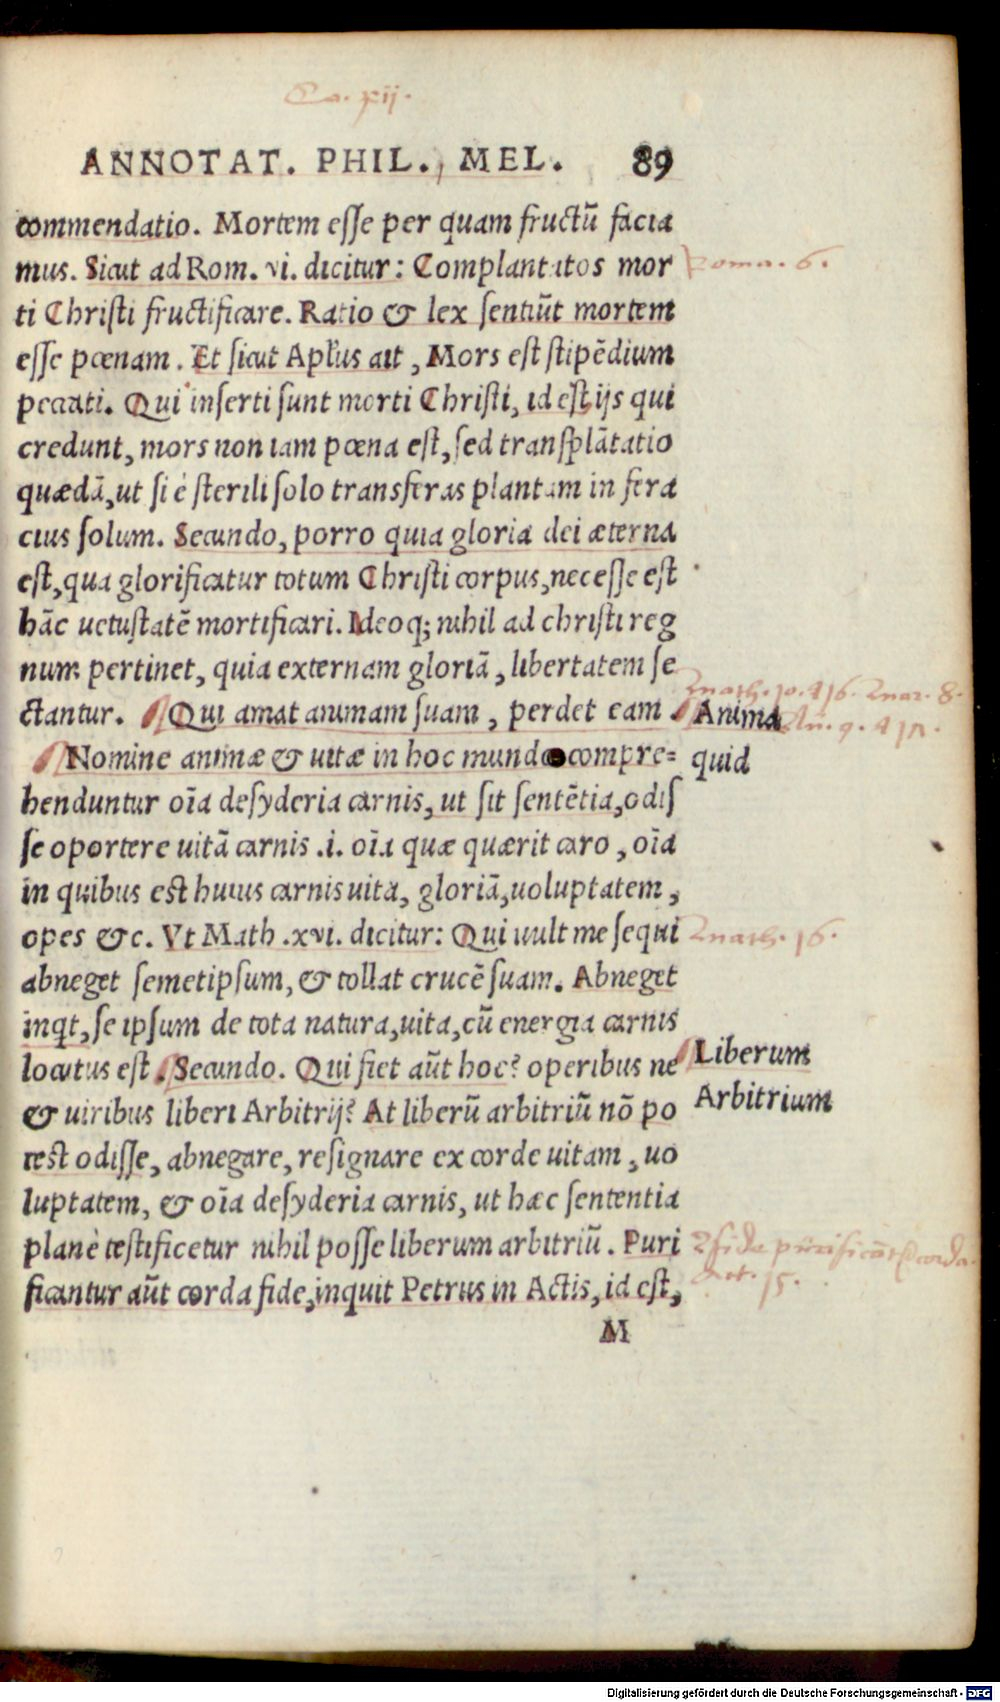 Ca. xij.
ANNOTAT. PHIL. MEL. 89
commendatio. Mortem esse per quam fructū facia
mus. Sicut ad Rom. vi. dicitur: Complantatos mor
Roma. 6.
ti Christi fructificare. Ratio & lex sentiūt mortem
esse pœnam. Et sicut Apl'us ait, Mors est stipēdium
peccati. Qui inserti sunt morti Christi, id est ijs qui
credunt, mors non iam pœna est, sed transplātatio
quædā, ut si è sterili solo transferas plantam in fera
cius solum. Secundo, porro quia gloria dei æterna
est, qua glorificatur totum Christi corpus, necesse est
hāc uetustatē mortificari. Ideoq; nihil ad christi reg
num pertinet, quia externam gloriā, libertatem se
Math. 10. & 16. Mar. 8.
ctantur. Qui amat animam suam, perdet eam.
Anima
Nomine animæ & uitæ in hoc mundo compre=
quid
henduntur oīa desyderia carnis, ut sit sentētia, odis
se oportere uitā carnis .i. oīa quæ quærit caro, oīa
in quibus est huius carnis uita, gloriā, uoluptatem,
opes &c. Vt Math .xvi. dicitur: Qui uult me sequi
Math. 16.
abneget semetipsum, & tollat crucē suam. Abneget
inqt, se ipsum de tota natura, uita, cū energia carnis
locutus est. Secundo. Qui fiet aūt hoc? operibus ne
Liberum
& uiribus liberi Arbitrij? At liberū arbitriū nō po
Arbitrium
test odisse, abnegare, resignare ex corde uitam, uo
luptatem, & oīa desyderia carnis, ut hæc sententia
planè testificetur nihil posse liberum arbitriū. Puri
fide purificāt corda.
ficantur aūt corda fide, inquit Petrus in Actis, id est,
Act. 15.
M
Digitalisierung gefördert durch die Deutsche Forschungsgemeinschaft - DFG